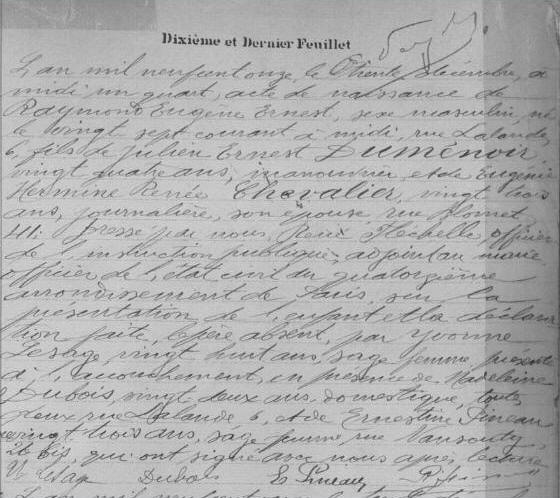 Dixième et Dernier Feuillet
L'an mil neuf cent onze, le trente décembre, à
midi un quart, acte de naissance de
Raymond Eugène Ernest, sexe masculin né
le vingt sept courant à midi, rue Lalande
6, fils de Julien Ernest Dumenoir
vingt quatre ans, manouvrier, et de Eugénie
Hermine Renée Chevalier, vingt trois
ans, journalière, son épouse, rue Blomet
41; Dressé par nous officier
de l'instruction publique, adjoint au maire
officier de l'état civil du quatorzième
arrondissement de Paris, sur la
présentation de l'enfant et la déclara
tion faite, le père absent, par Yvonne
Lesage vingt huit ans, sage femme, présente
à l'accouchement, en présence de Madeleine
Dubois, vingt deux ans, domestique, toutes
deux rue Lalande 6, et de Ernestine Pineau
vingt trois ans, sage femme, rue Vansouty
26 bis, qui ont signé avec nous après lecture
Y. Lesage Dubois E. Pineau
L'an mil neuf cent